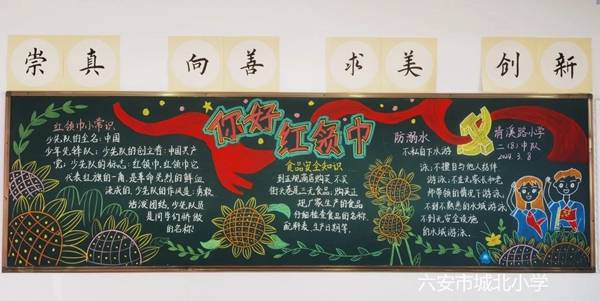 崇真
向善
求美
创新
你好
红领巾
红领巾小常识
少先队的全名：中国
少年先锋队；少先队的创立者：中国共产
党；少先队的标志：红领巾，红领巾它
代表红旗的一角，是革命先烈的鲜血
染成的，少先队的作风是：勇敢
活泼团结，少先队员
是同学们骄傲
的名称！
食品安全知识
到正规商店购买，不买
街头巷尾三无食品，购买正
规厂家生产的食品
仔细检查食品的名称、
配料表、生产日期等。
防溺水
不私自下水游
泳；不擅自与他人结伴
游泳；不在无家长和老
师带领的情况下游泳；
不到不熟悉的水域游泳；
不到无安全设施
的水域游泳。
小学
二（8）中队
2024.3.8
六安市城北小学